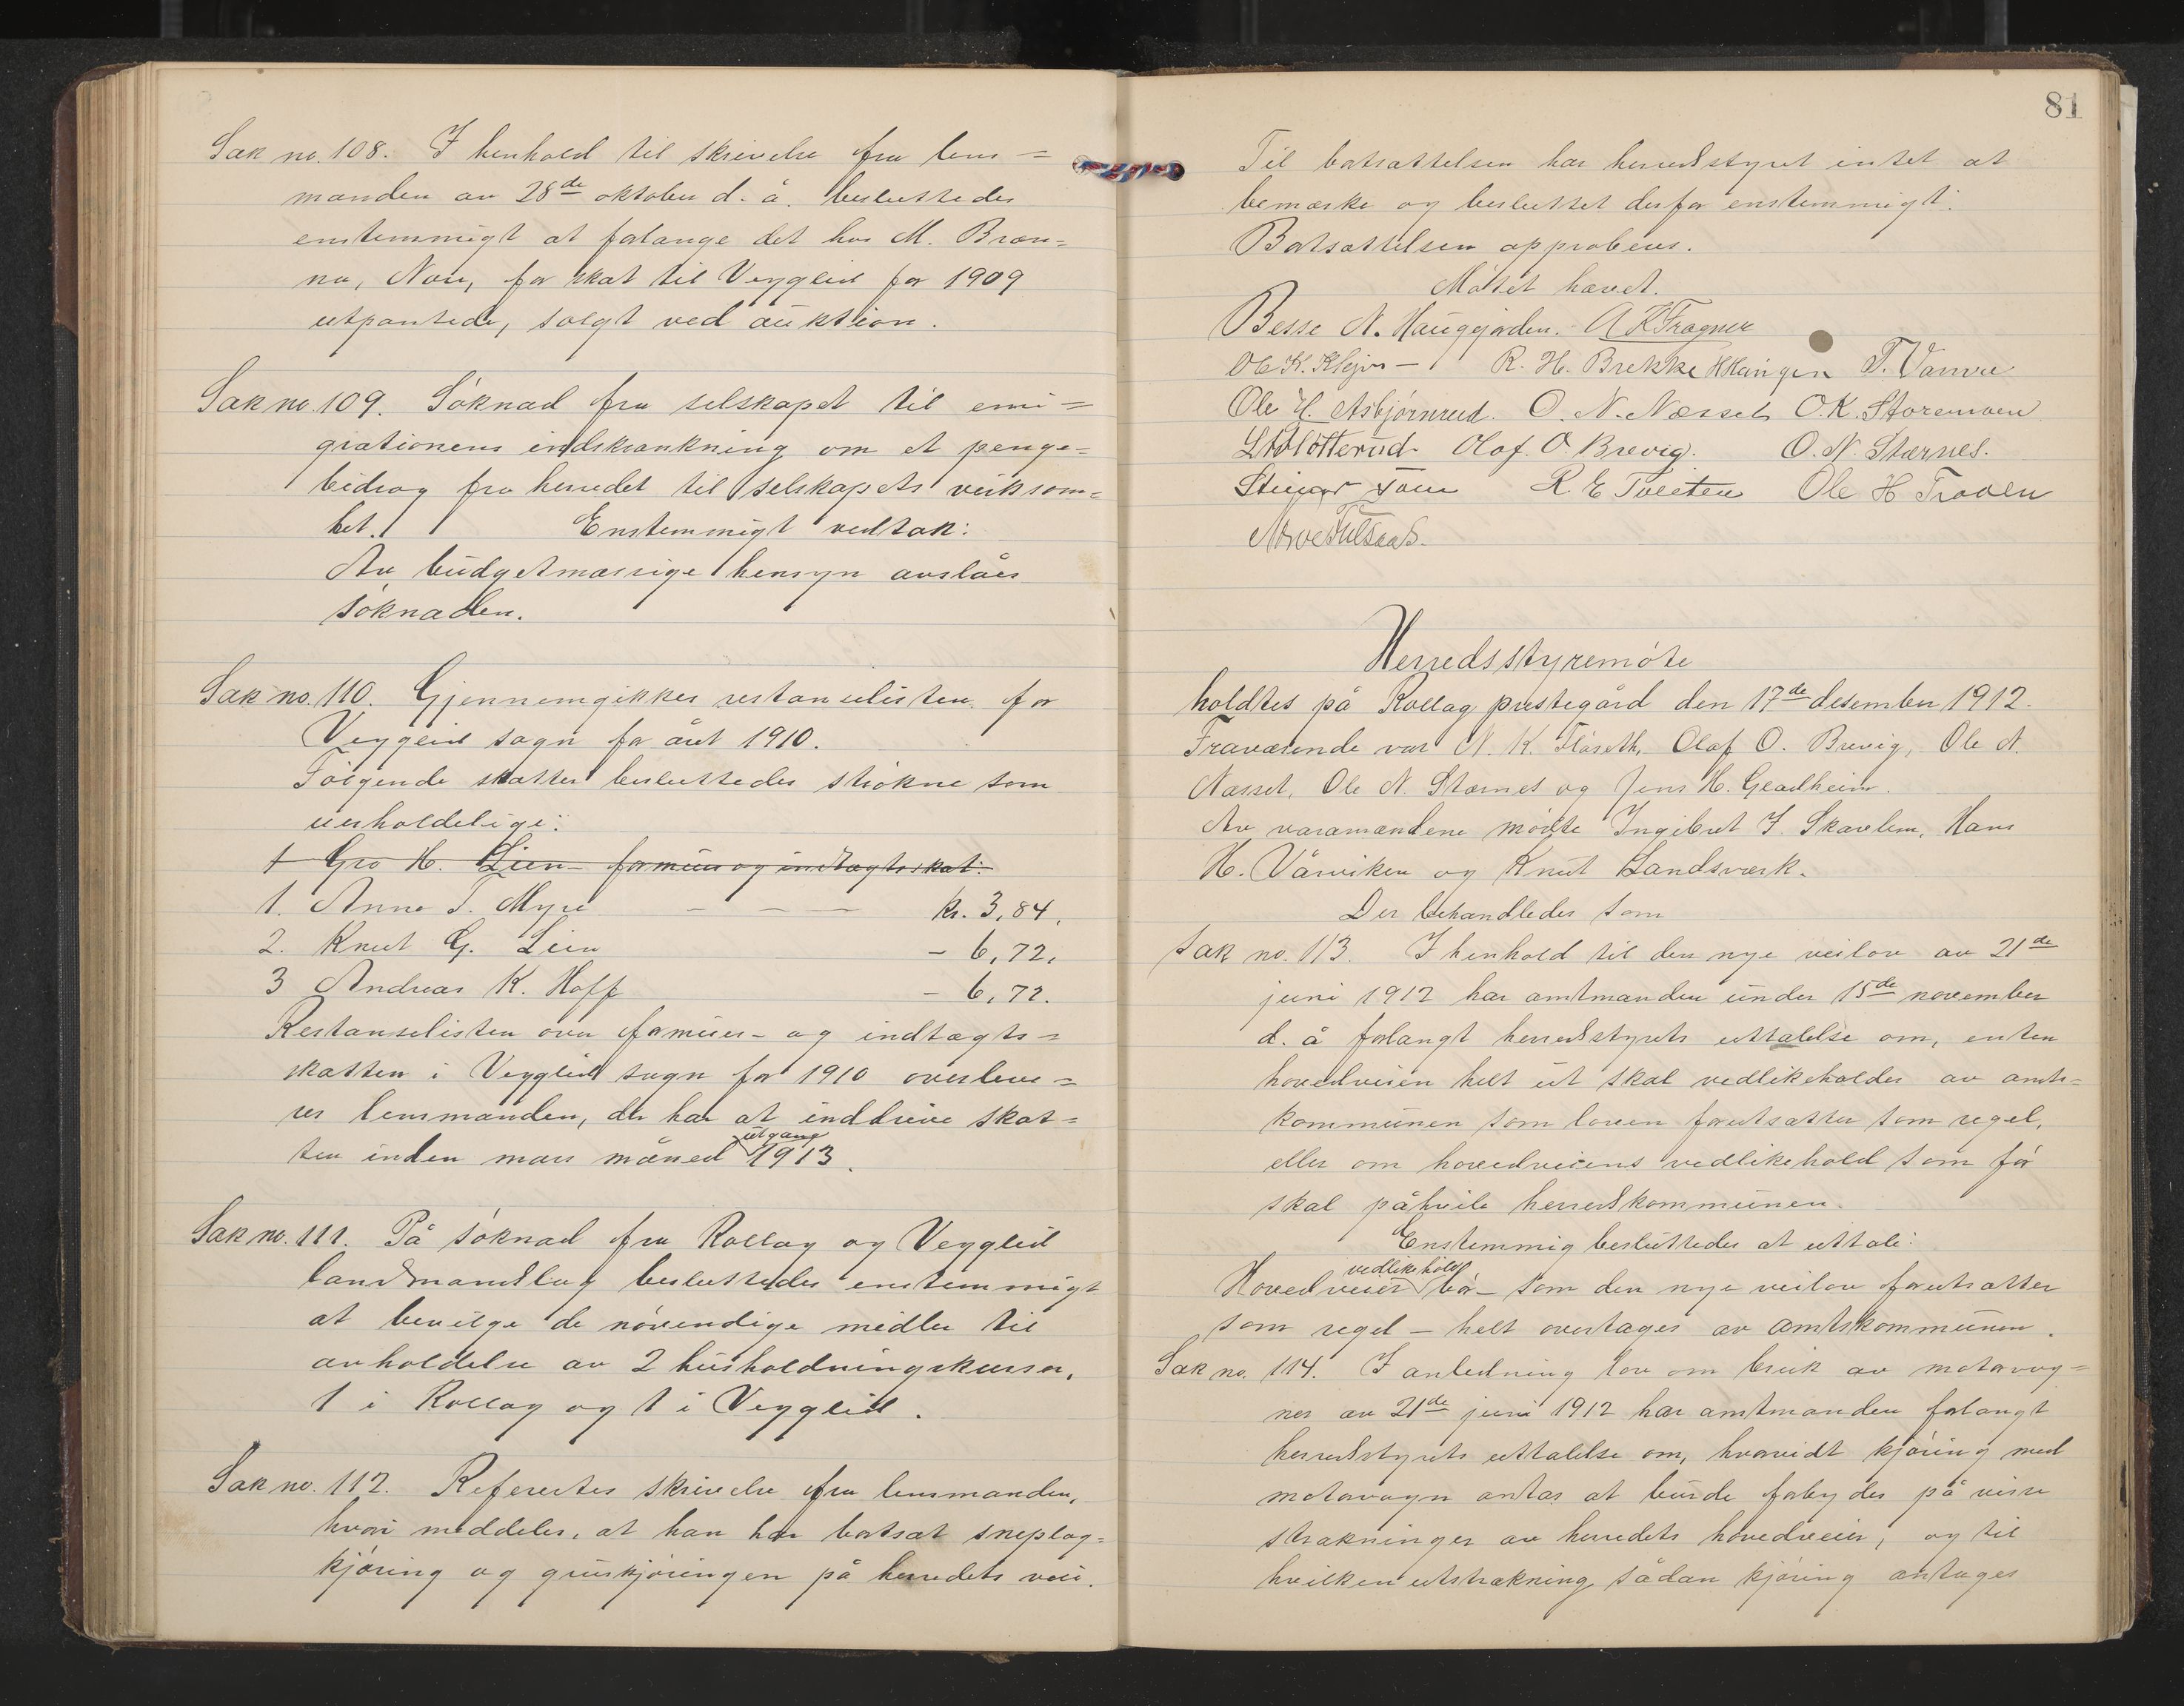 Sak no. 108. I henhold til skrivelse fra lens=
manden av 28de oktober d. å. besluttedes
enstemmigt at forlange det hos M. Bræn=
na, Nore, for skat til Veggleid for 1909
utpantede, solgt ved auktion.
Sak no. 109. Søknad fra selskapet til emi=
grationens indskrænkning om et penge=
bidrag fra herredet til selskapets virksom=
het. Enstemmigt vedtak:
Av budgetmæssige hensyn avslåes
søknaden.
Sak no. 110. Gjennemgikkes restanselisten for
Veggleid sogn for året 1910.
Følgende skatter besluttedes strøkne som
uerholdelige:
1 Gro H. Lien - formues og indtægtsskat:
1. Anne T. Myre — — — kr. 3,84.
2. Knut G. Lien - 6,72.
3 Andreas K. Hoff - 6,72.
Restanselisten over formues- og indtægts=
skatten i Veggleid sogn for 1910 overleve=
res lensmanden, der har at inddrive skat=
utgang
ten inden mars måned 1913.
Sak no. 111. På søknad fra Rollag og Veggleid
landmandslag besluttedes enstemmigt
at bevilge de nøvendige midler til
avholdelse av 2 husholdningskurser,
1 i Rollag og 1 i Veggleid.
Sak no. 112. Referertes skrivelse fra lensmanden,
hvori meddeles, at han har bortsat sneplog=
kjøring og gruskjøringen på herredets veie.
81
Til bortsættelsen har herredsstyret intet at
bemærke og besluttet derfor enstemmigt:
Bortsættelsen approberes.
Møtet hævet.
Besse N. Hauggjorden. A K Fragner
Ole K. Klejvr — R. H. Brekke HHaugen T.
Ole H. Asbjørnrud. O. N. Næsset O.K. Storemoen
Olaf. O. Brevig. O. N. Stærnes.
Steinar R E Tveiten Ole H Traaen
Herredsstyremøte
holdtes på Rollag prestegård den 17de desember 1912.
Fraværende var N. K. Flåseth, Olaf O. Brevig, Ole N.
Næsset, Ole N. Stærnes og Jens H. Gladheim.
Av varamændene møtte Ingebret J. Skavlem, Hans
H. Vårviken og Knut Landsværk.
Der behandledes som
Sak no. 113. I henhold til den nye veilov av 21de
juni 1912 har amtmanden under 15de november
d. å forlangt herredsstyrets uttalelse om, enten
hovedveien helt ut skal vedlikeholdes av amts=
kommunen som loven forutsætter som regel,
eller om hovedveiens vedlikehold som før
skal påhvile herredskommunen.
Enstemmig besluttedes at uttale:
vedlikehold
Hovedveies bør - som den nye veilov forutsætter
som regel - helt overtages av amtskommunen.
Sak no. 114. I anledning lov om bruk av motorvog=
ner av 21de juni 1912 har amtmanden forlangt
herredsstyrets uttalelse om, hvorvidt kjøring med
motorvogn antas at burde forbydes på visse
strækninger av herredets hovedveier, og til
hvilken utstrækning sådan kjøring antages